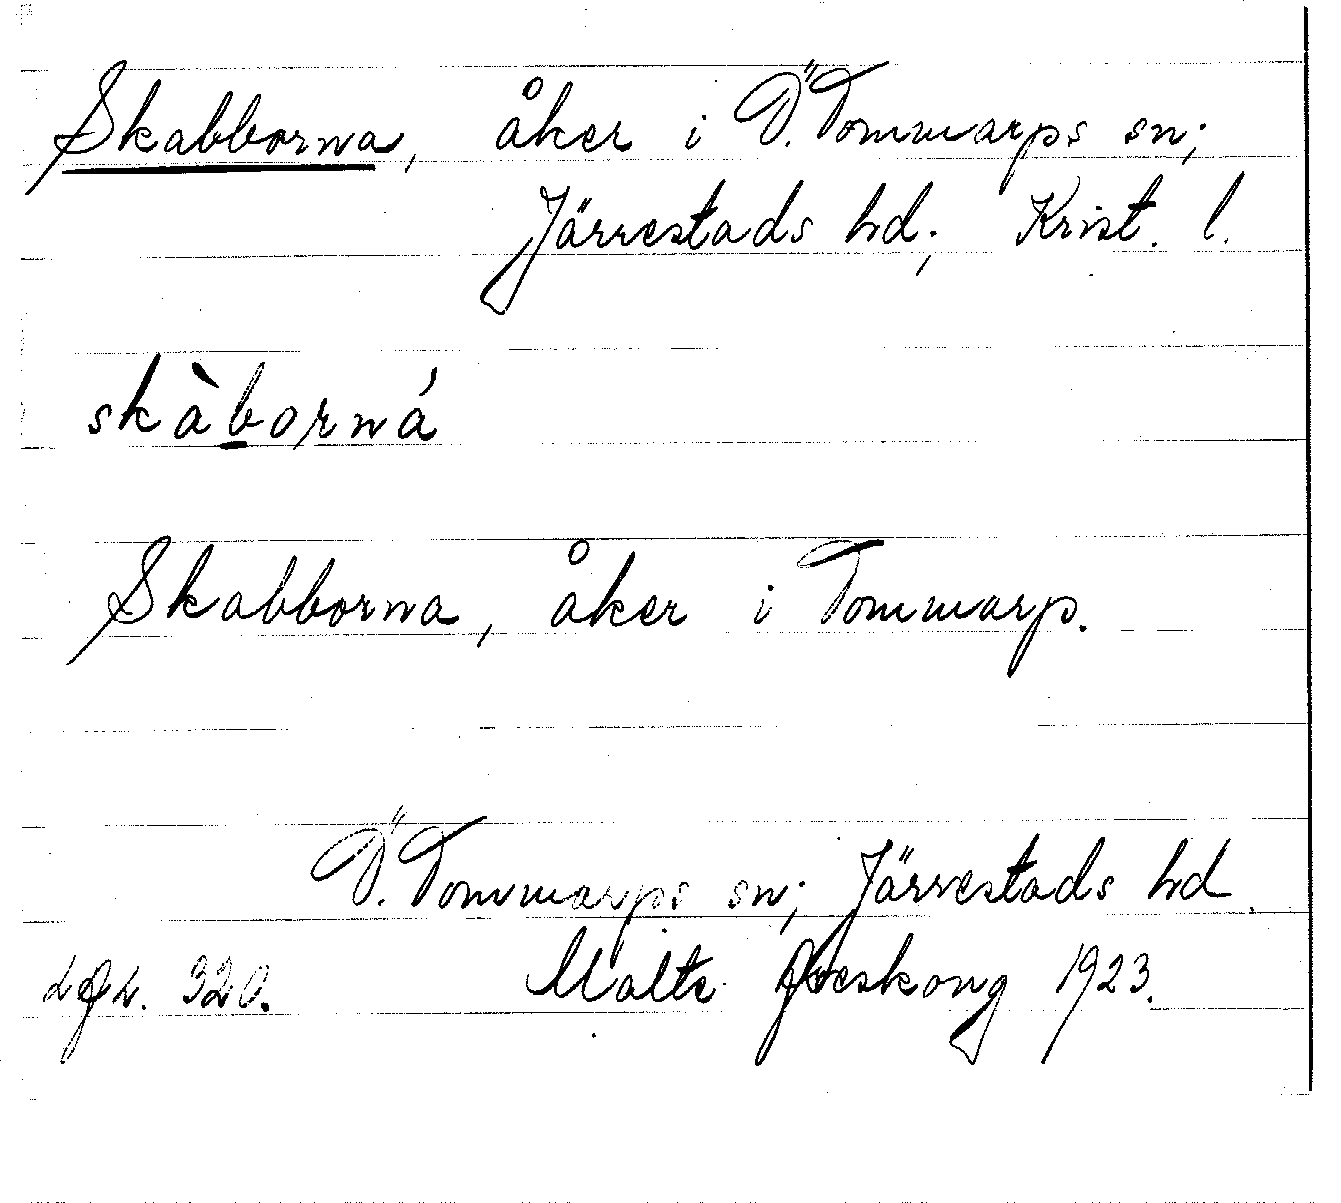 Skabborna, åker i Ö. Tommarps sn;
Järrestads hd; Krist. l.
skàborná
Skabborna, åker i Tommarp.
Ö. Tommarps sn; Järrestads hd.
320. Malte 1923.